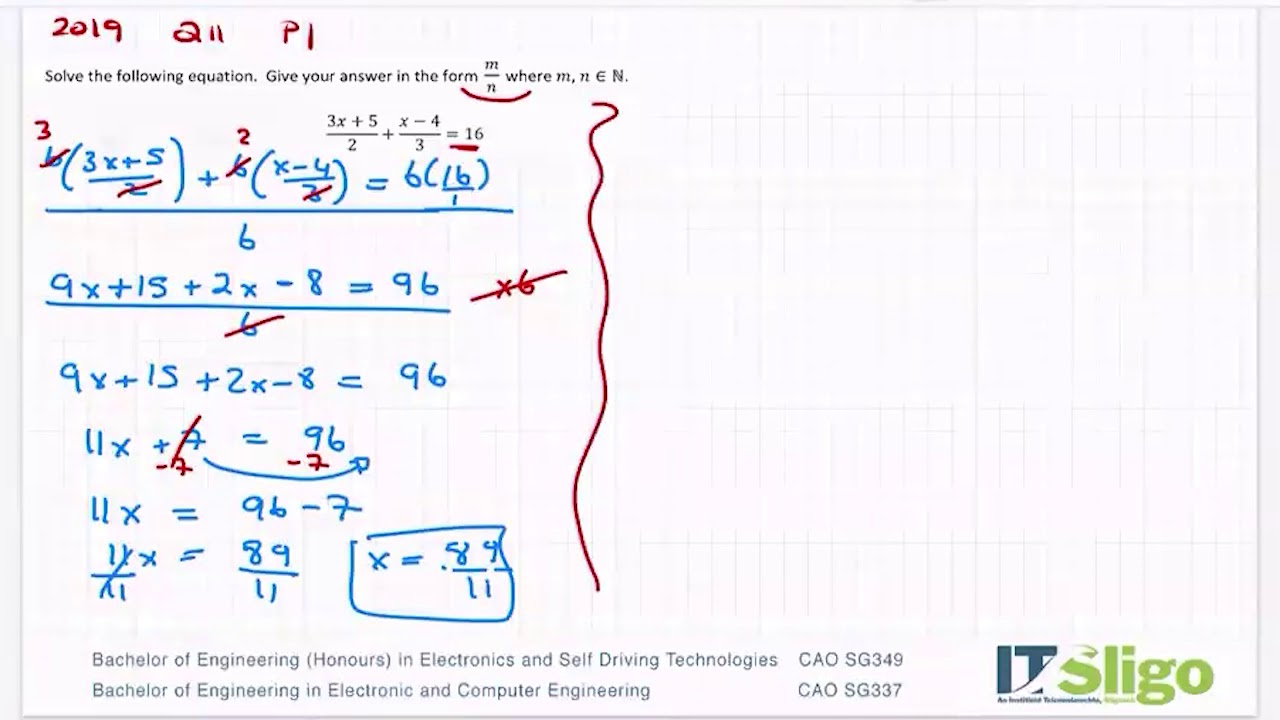 2019 Q11 P1
Solve the following equation. Give your answer in the form m/n where m, n ∈ ℕ.
(3x + 5)/2 + (x − 4)/3 = 16
3 2
6(3x+5/2) + 6(x-4/3) = 6(16/1)
6
9x+15+2x-8 = 96 x6
6
9x+15+2x-8 = 96
11x +7 = 96
-7 -7
11x = 96-7
11x/11 = 89/11 x = 89/11
Bachelor of Engineering (Honours) in Electronics and Self Driving Technologies CAO SG349
Bachelor of Engineering in Electronic and Computer Engineering CAO SG337
IT Sligo
An Institiúid Teicneolaíochta, Sligeach